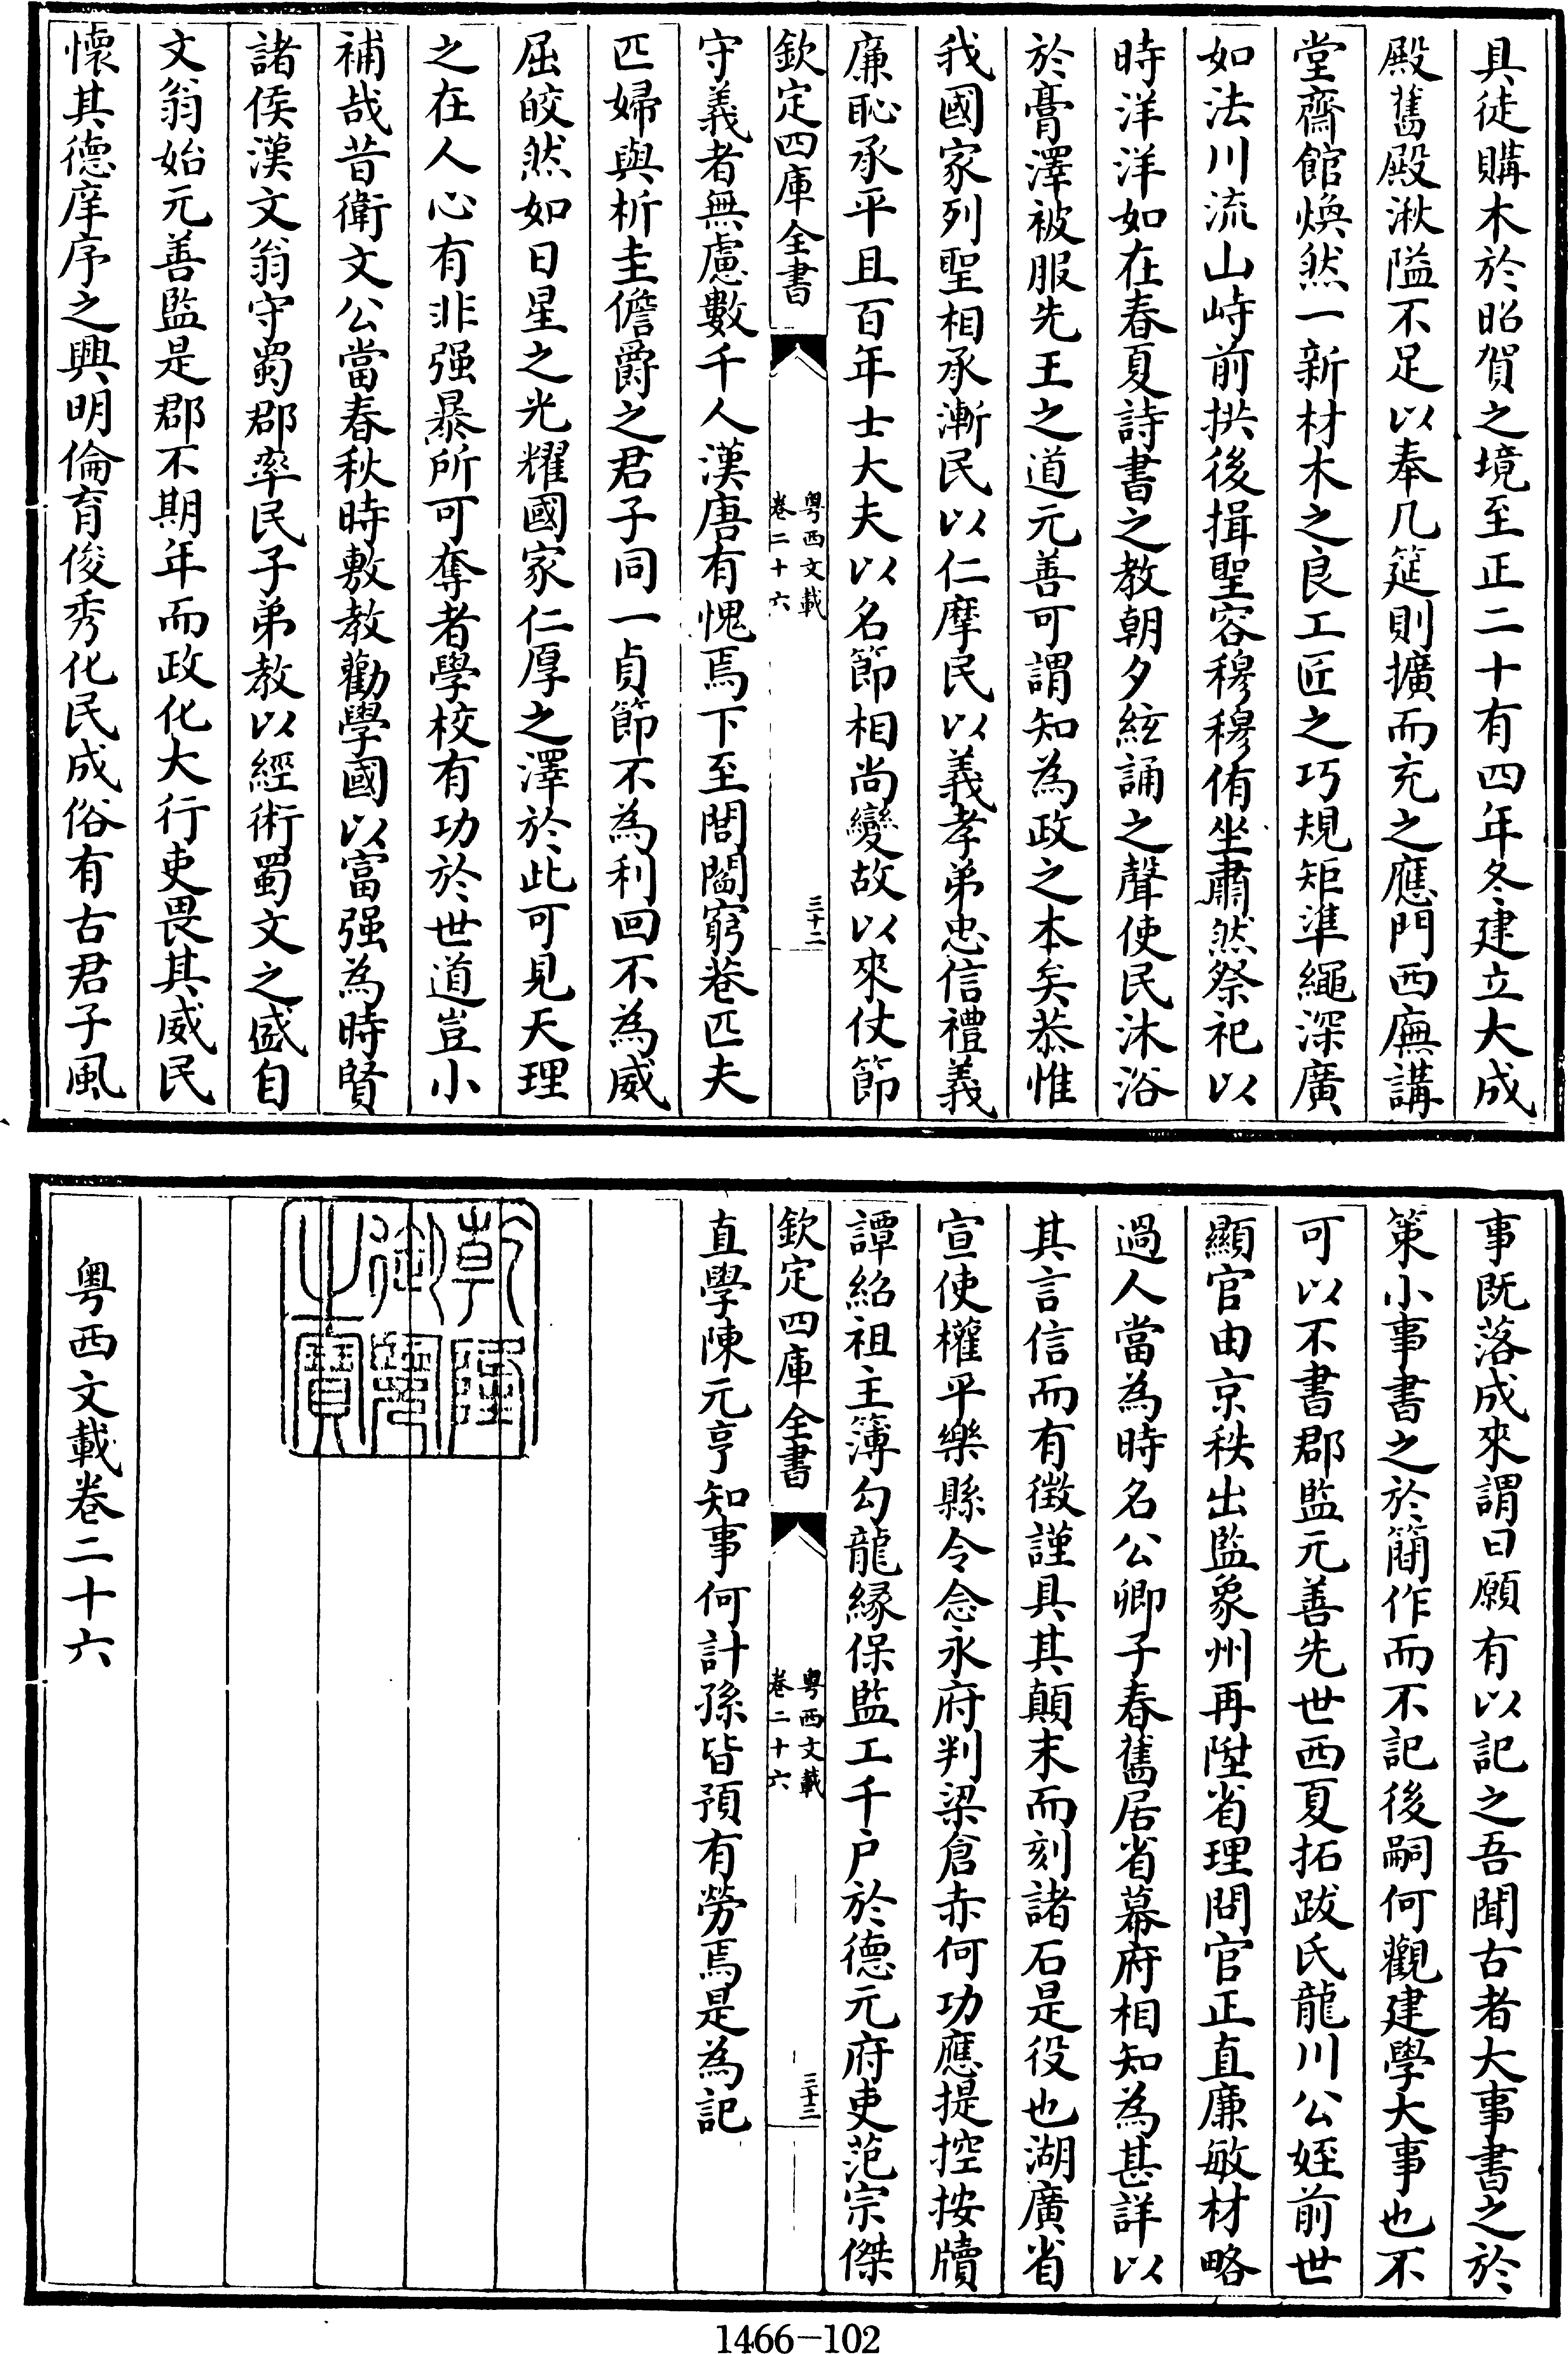 具徒購木於昭賀之境至正二十有四年冬建立大成
殿舊殿湫隘不足以奉几筵則擴而充之應門西廡講
堂齋館煥然一新材木之良工匠之巧規矩準繩深廣
如法川流山峙前拱後揖聖容穆穆侑坐肅然祭祀以
時洋洋如在春夏詩書之教朝夕絃誦之聲使民沐浴
於膏澤被服先王之道元善可謂知為政之本矣恭惟
我國家列聖相承漸民以仁摩民以義孝弟忠信禮義
廉恥承平且百年士大夫以名節相尚變故以來仗節
欽定四庫全書
粤西文載
卷二十六
三十二
守義者無慮數千人漢唐有愧焉下至閭閻窮巷匹夫
匹婦與析圭儋爵之君子同一貞節不為利回不為威
屈皎然如日星之光耀國家仁厚之澤於此可見天理
之在人心有非强暴所可奪者學校有功於世道豈小
補哉昔衛文公當春秋時敷教勸學國以富强為時賢
諸侯漢文翁守蜀郡率民子弟教以經術蜀文之盛自
文翁始元善監是郡不期年而政化大行吏畏其威民
懷其德庠序之興明倫育俊秀化民成俗有古君子風
事既落成來謂曰願有以記之吾聞古者大事書之於
策小事書之於簡作而不記後嗣何觀建學大事也不
可以不書郡監元善先世西夏拓跋氏龍川公姪前世
顯官由京秩出監象州再陞省理問官正直廉敏材略
過人當為時名公卿子春舊居省幕府相知為甚詳以
其言信而有徴謹具其顛末而刻諸石是役也湖廣省
宣使權平樂縣令念永府判梁倉赤何功應提控按牘
譚紹祖主簿勾龍緣保監工千户於德元府吏范宗傑
欽定四庫全書
粤西文載
卷二十六
三十三
直學陳元亨知事何計孫皆預有勞焉是為記
乾隆
御覽
之寶
粤西文載卷二十六
1466-102